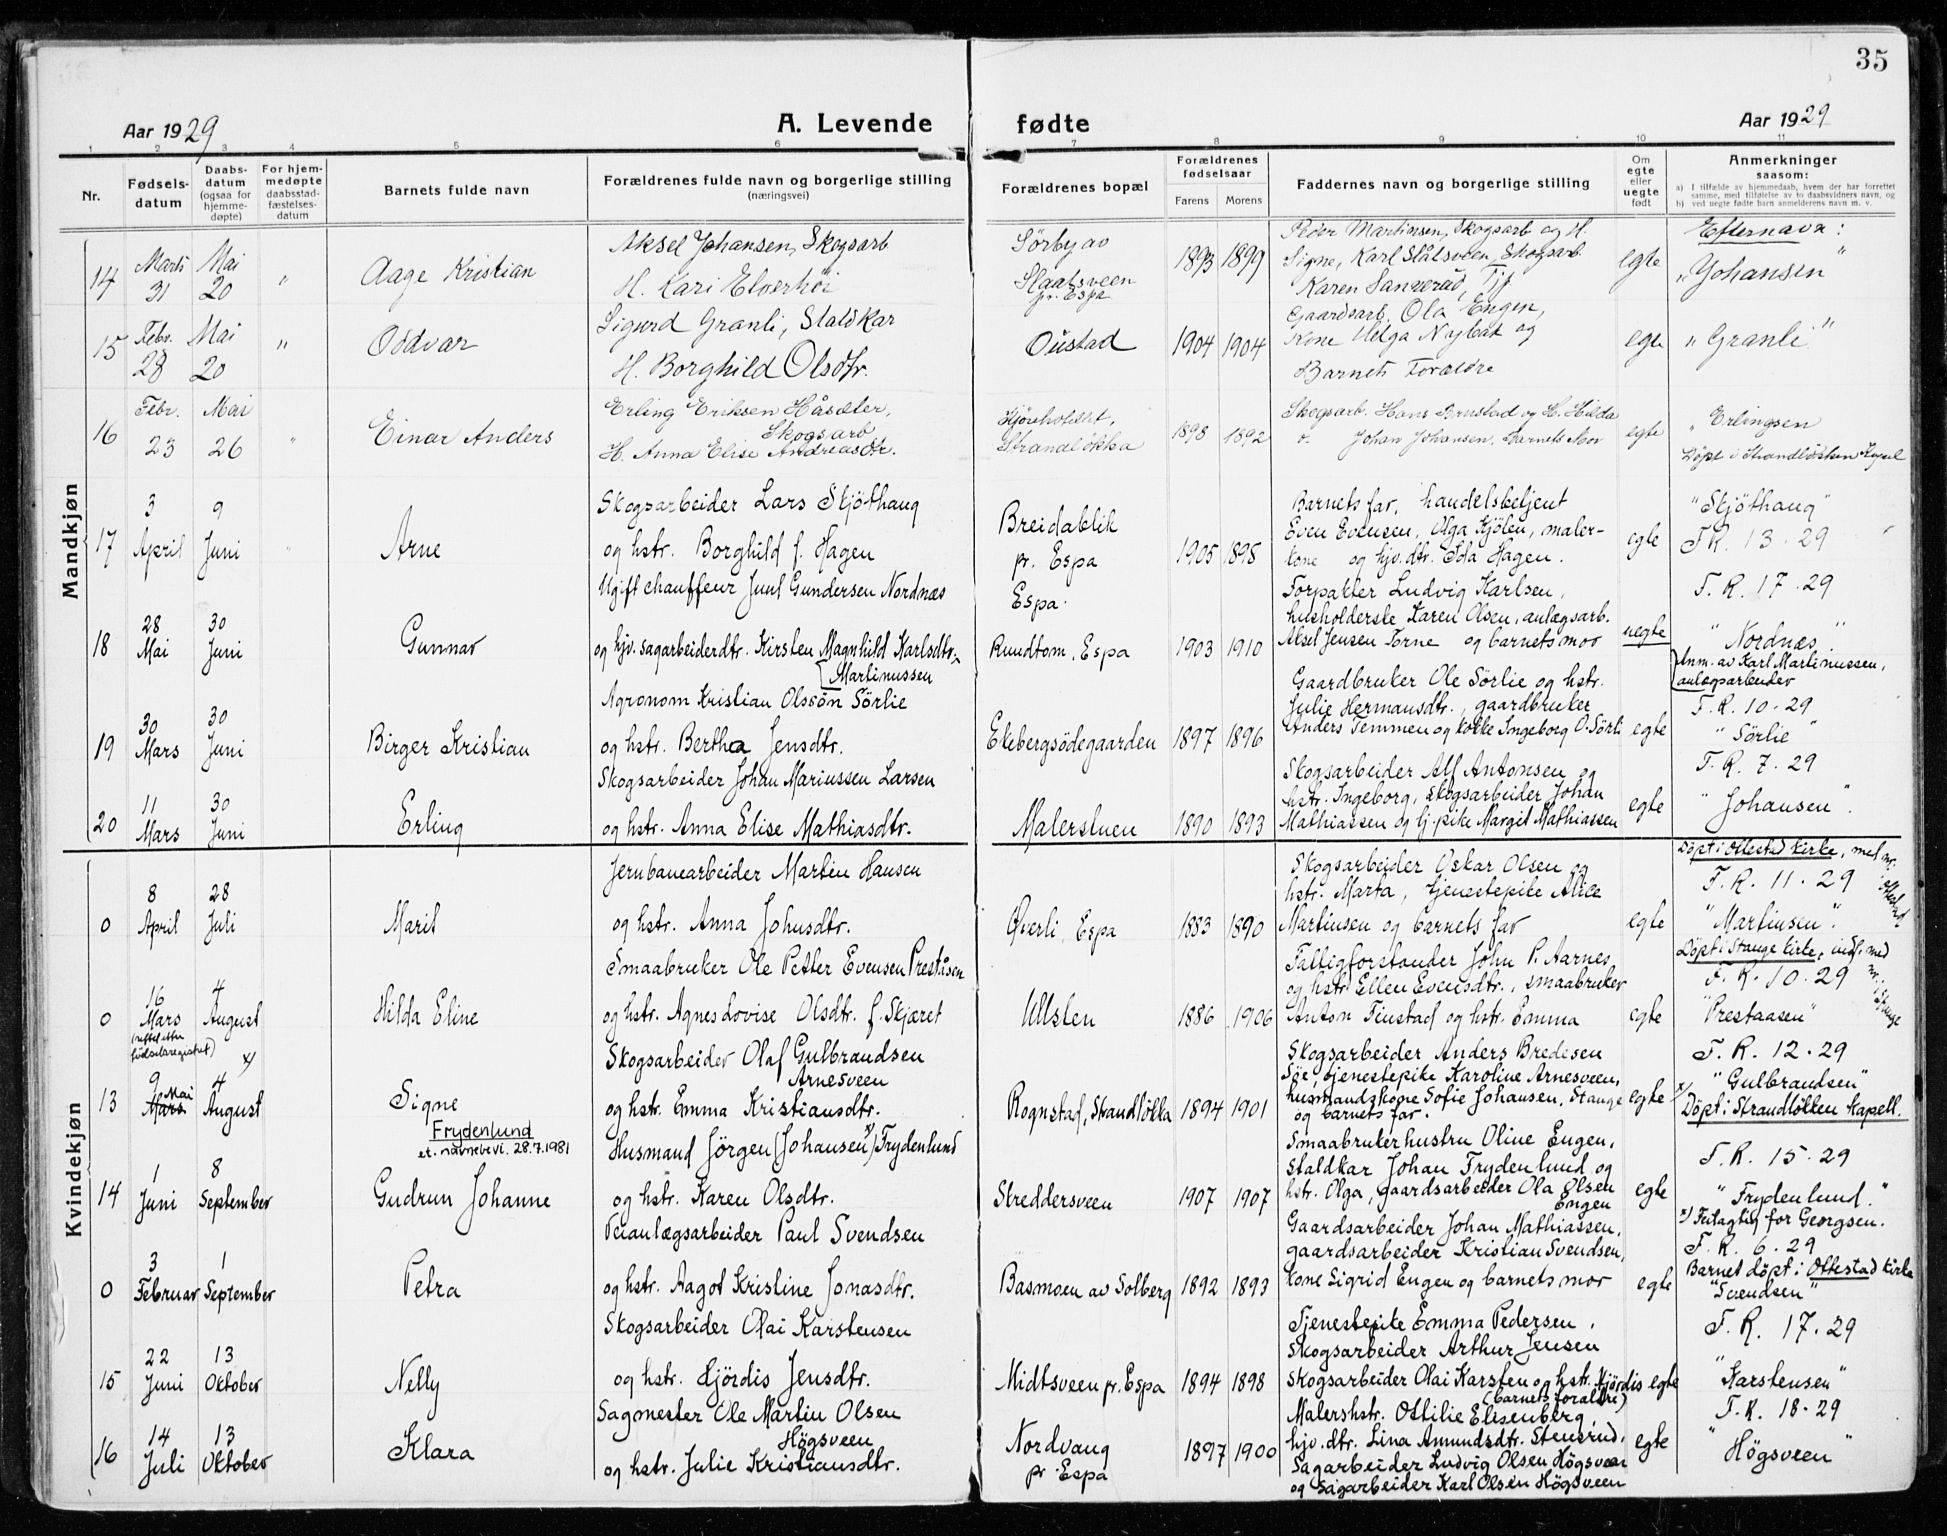 35
Aar 1929
A. Levende fødte
Aar 1929
1 2 3 4 5 6 7 8 9 10 11
Nr.
Fødsels-datum
Daabs-datum (ogsaa for hjemme-døpte)
For hjem-medøpte daabsstad-fæstelses-datum
Barnets fulde navn
Forældrenes fulde navn og borgerlige stilling (næringsvei)
Forældrenes bopæl
Forældrenes fødselsaar
Farens Morens
Faddernes navn og borgerlige stilling
Om egte eller uegte født
Anmerkninger saasom:
a) I tilfælde av hjemmedaab, hvem der har forrettet samme, med tilføielse av to daabsvidners navn, og
b) ved uegte fødte barn anmelderens navn m. v.
Mandkjøn
14 Marts 31 Mai 20 " Aage Kristian
Aksel Johansen, Skogsarb
H. Kari Elverhöi
Sörby av
Slaatsveen
pr. Espa
1893 1899
Peder Martinsen, Skogsarb og H.
Signe, Karl Slåtsveen, Skogsarb.
Karen Sanderud, Tjf
egte
Efternavn:
"Johansen"
15 Febr. 28 Mai 20 " Oddvar
Sigurd Granli, Staldkar
H. Borghild Olsdtr.
Oustad
1904 1904
Gaardsarb. Ola Engen,
Kone Helga Nybak og
Barnets Forældre
egte
"Granli"
16 Febr. 23 Mai 26 " Einar Anders
Erling Eriksen Håsæter,
Skogsarb
H. Anna Elise Andreasdtr.
Strandlökka
1898 1892
Skogsarb. Hans Brustad og H. Hilda
o. Johan Johansen. Barnets Mor
egte
" Erlingsen
Döpt i Strandlökken Kapel
17 3 April 9 Juni " Arne
Skogsarbeider Lars Skjöthaug
og hstr. Borghild f. Hagen
Breidablik
pr. Espa
1905 1898
Barnets far, handelsbetjent
Even Evensen, Olga Kjölen, maler-
kone og hjv. dtr. Ida Hagen.
egte
"Skjöthaug"
F.R. 13-29
18 28 Mai 30 Juni Gunnar
Ugift chauffeur Juul Gundersen Nordnæs
og hjv. sagarbeiderdtr. Kirsten Magnhild Karlsdtr.
(Martinussen
Espa.
Rundtom, Espa
1903 1910
Forpakter Ludvig Karlsen,
husholderske Karen Olsen, anlægsarb.
Aksel Jensen Torne og barnets mor
uegte
F. R. 17-29
"Nordnæs".
Anm. av Karl Martinussen,
anlægsarbeider
19 30 Mars 30 Juni Birger Kristian
Agronom Kristian Olssøn Sörlie
og hstr. Berthea Jensdtr.
Ekebergsödegaarden
1897 1896
Gaardbruker Ole Sörlie og hstr.
Julie Hermansdtr., gaardbruker
Anders Temmen og kokke Ingeborg O. Sörli
egte
F.R. 10-29
"Sörlie"
20 11 Mars 30 Juni Erling
Skogsarbeider Johan Mariussen Larsen
og hstr. Anna Elise Mathiasdtr.
Malerstuen
1890 1893
Skogsarbeider Alf Antonsen og
hstr. Ingeborg, skogsarbeider Johan
Mathiassen og tj.pike Margit Mathiassen
egte
F.R. 7-29
"Johansen".
Kvindekjøn
0 8 April 28 Juli Marit
Jernbanearbeider Martin Hansen
og hstr. Anna Johusdtr.
Øverli, Espa
1883 1890
Skogsarbeider Oskar Olsen og
hstr. Marta, tjenestepike Alice
Martinsen og barnets far
egte
Döpt i Ottestad kirke, med nr. i Ottestad
F.R. 11-29
"Martinsen".
0 16 Mars (rettet etter fødselsregistret) 4 August Hilda Eline
Smaabruker Ole Petter Evensen Preståsen
og hstr. Agnes Lovise Olsdtr. f. Skjæret
Ullslen
1886 1906
Fattigforstander John P. Aarnes,
og hstr. Ellen Evensdtr., smaabruker
Anton Finstad og hstr. Emma
egte
Döpt i Stange kirke, indf. med nr. i Stange
F.R. 10-29
"Prestaasen"
13 9 Mai Mars 4 August x) Signe
Skogsarbeider Olaf Gulbrandsen
Arnesveen
og hstr. Emma Kristiansdtr.
Rognstad, Strandlökka
1894 1901
Skogsarbeider Anders Bredesen
Söe, tjenestepike Karoline Arnesveen,
husmandskone Sofie Johansen, Stange
og barnets far.
egte
F.R. 12-29
"Gulbrandsen"
x) Döpt i Strandlökken Kapell.
14 1 Juni 8 September Gudrun Johanne
Frydenlund
et. navnebevi. 28.7.1981
Husmand Jörgen (Johansen x) Frydenlund
og hstr. Karen Olsdtr.
Streddersveen
1907 1907
Smaabrukerhustru Oline Engen,
staldkar Johan Frydenlund og
hstr. Olga, gaardsarbeider Ola Olsen
Engen
egte
F.R. 15-29
"Frydenlund."
x) Feilagtig for Georgsen.
0 3 Februar 1 September Petra
Veianlægsarbeider Paul Svendsen
og hstr. Aagot Kristine Jonasdtr.
Basmoen av Solberg
1892 1893
Gaardsarbeider Johan Mathiassen,
gaardsarbeider Kristian Svendsen,
kone Sigrid Engen og barnets mor
egte
F.R. 6-29
Barnet döpt i Ottestad kirke
"Svendsen"
15 22 Juni 13 Oktober Nelly
Skogsarbeider Olai Karstensen
og hstr. Hjördis Jensdtr.
Midtsveen pr. Espa
1894 1898
Tjenestepike Emma Pedersen,
skogsarbeider Arthur Jensen
skogsarbeider Olai Karsten og hstr. Hjördis
(barnets foraldre)
egte
F.R. 17-29
"Karstensen"
16 14 Juli 13 Oktober Klara
Sagmester Ole Martin Olsen
Högsveen
og hstr. Julie Kristiansdtr.
Nordvang
pr. Espa
1897 1900
Malershstr. Ottilie Elisenberg,
hjv. dtr. Lina Amundsdtr. Stensrud,
Sagarbeider Ludvig Olsen Högsveen
og Sagarbeider Karl Olsen Högsveen
egte
F.R. 18-29
"Högsveen"